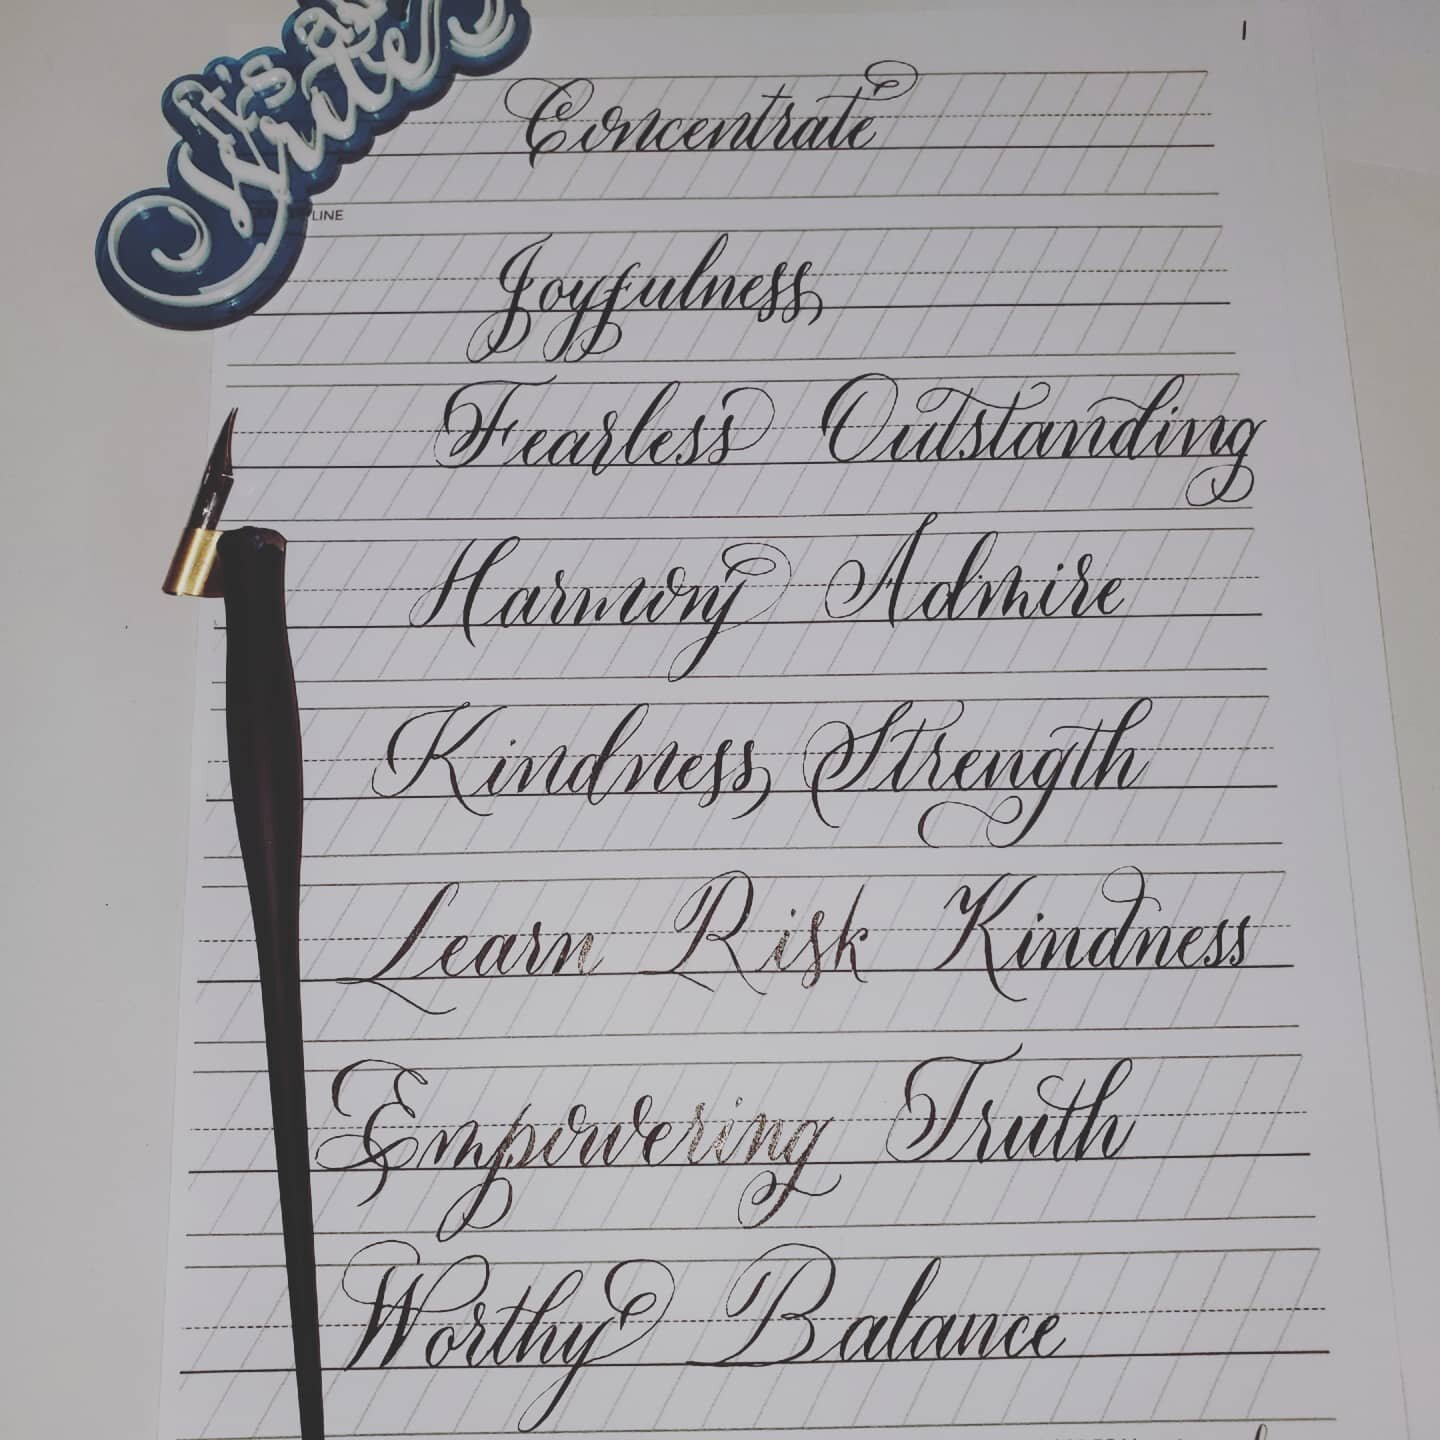 It's
Write
1
Concentrate
LINE
Joyfulness
Fearless Outstanding
Harmony Admire
Kindness Strength
Learn Risk Kindness
Empowering Truth
Worthy Balance